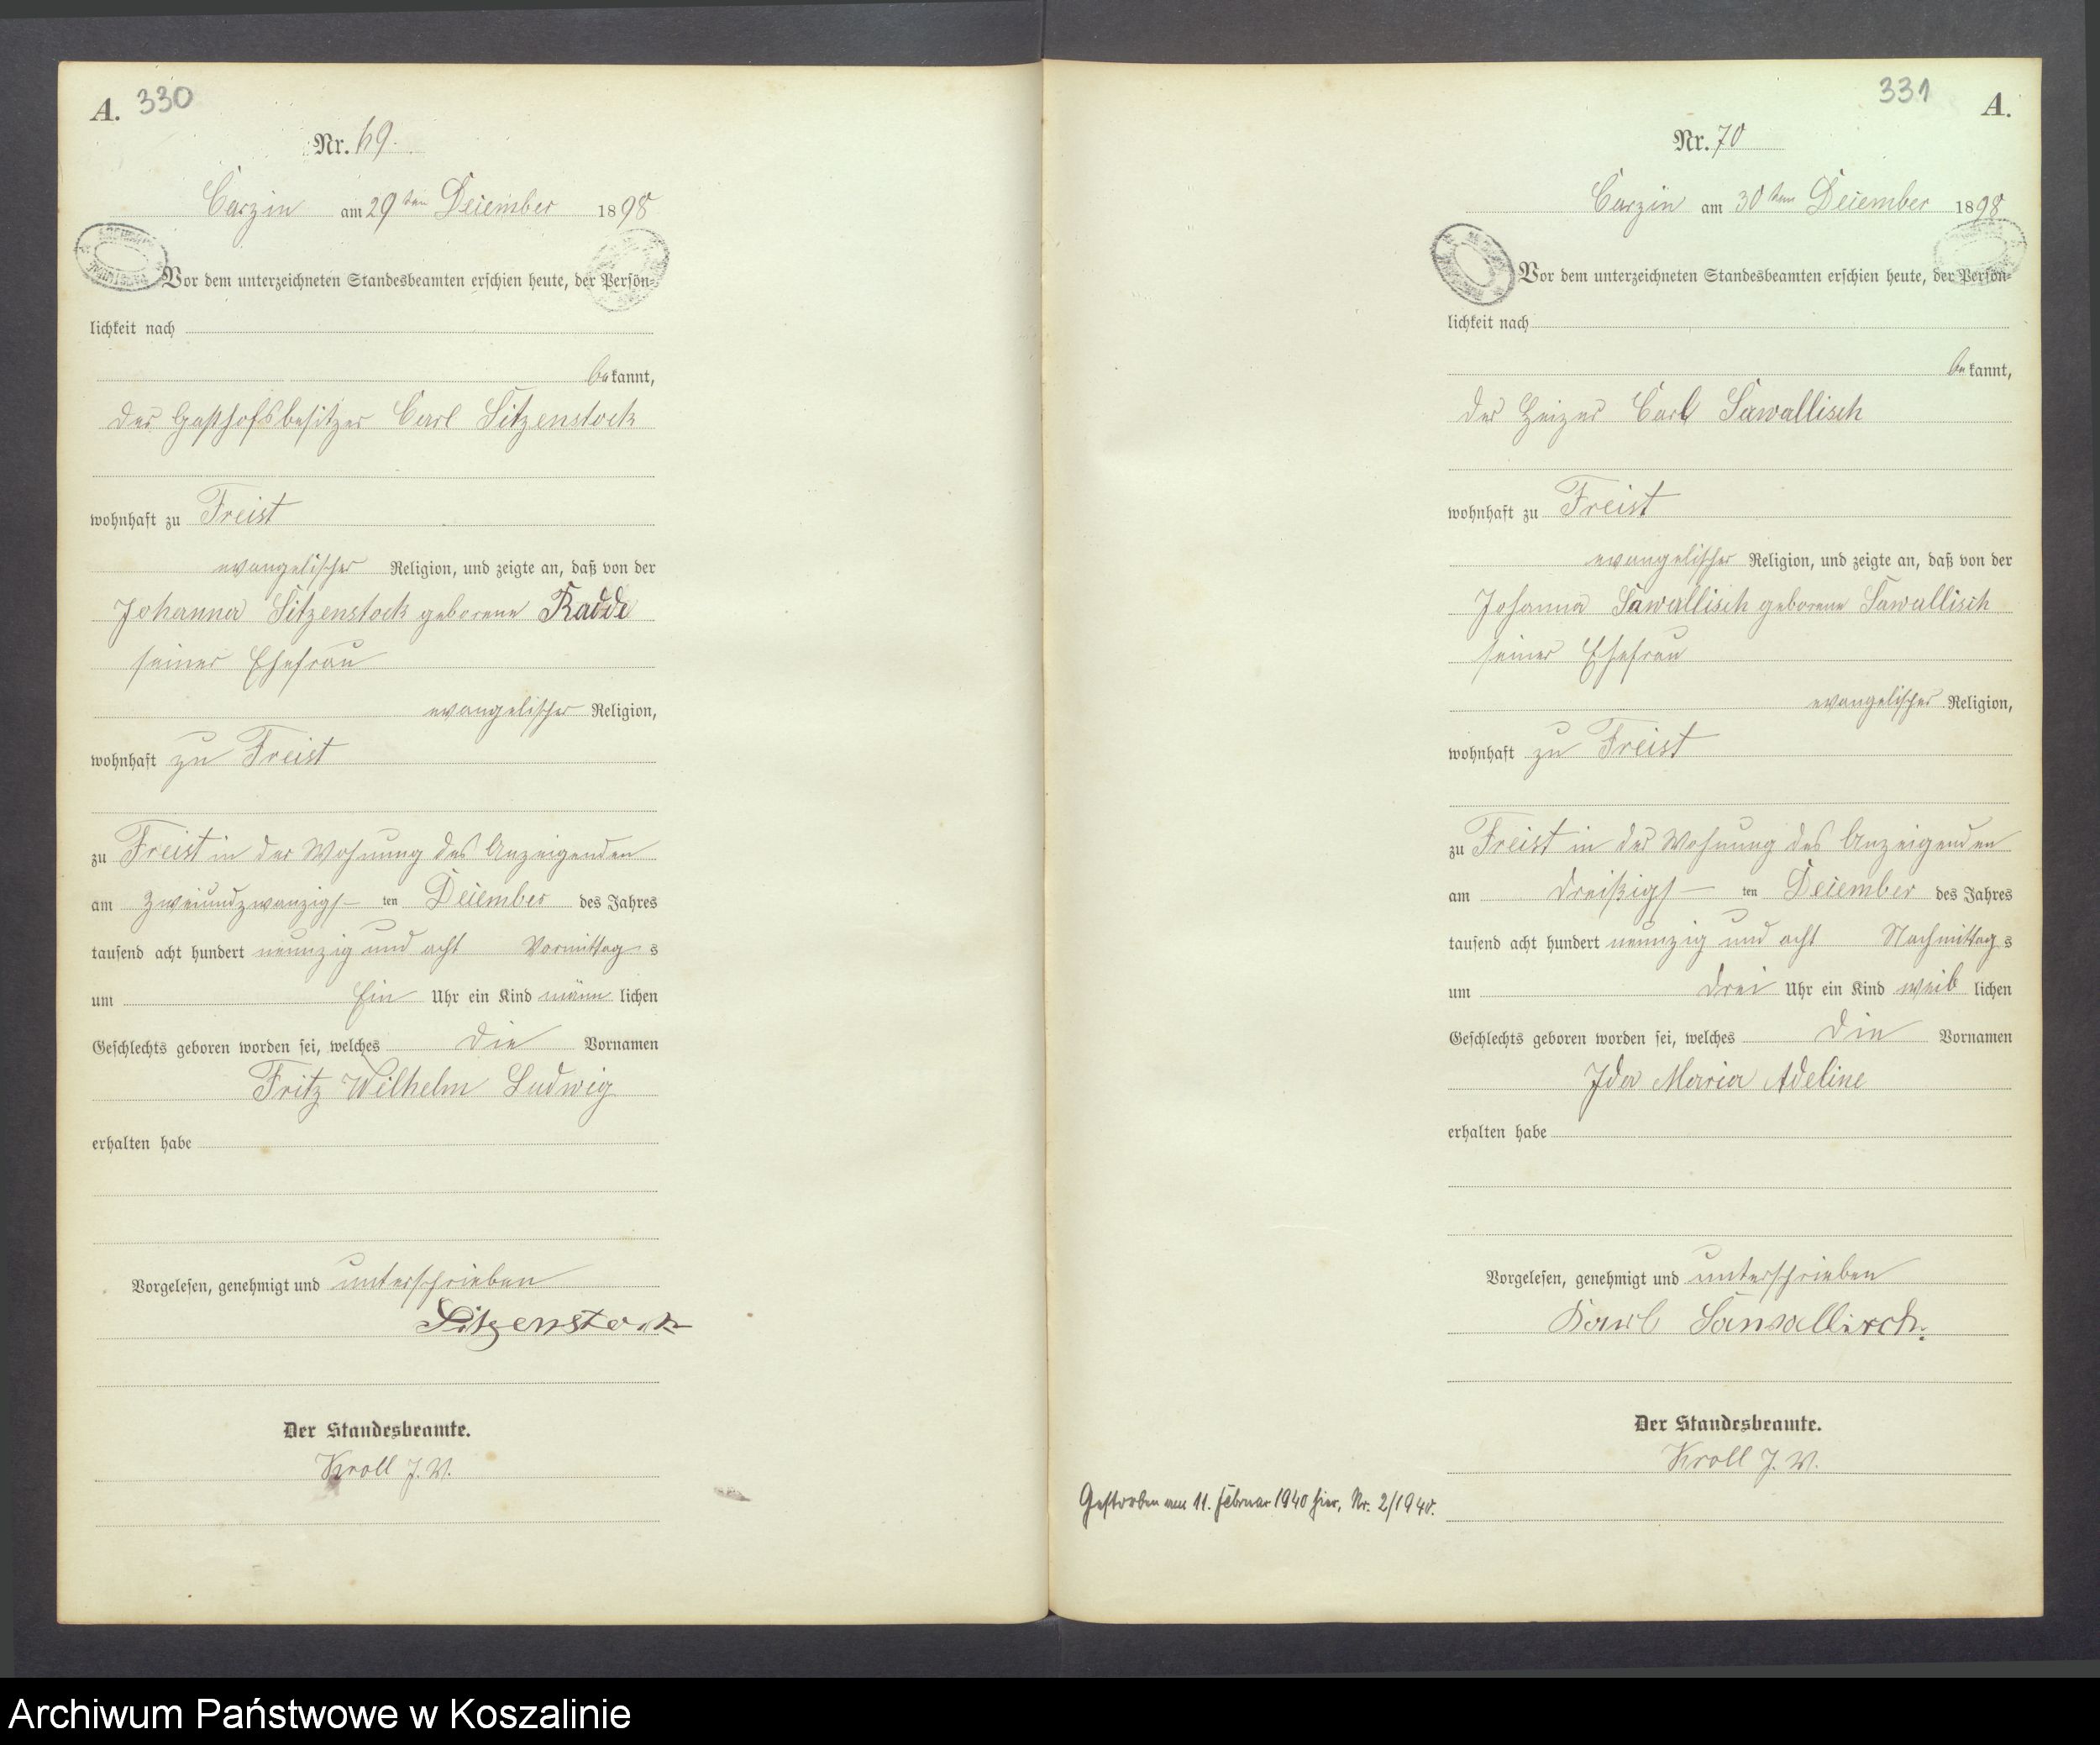 A. 330
Nr. 69.
Carzin am 29ten December 1898
Vor dem unterzeichneten Standesbeamten erschien heute, der Persön-
lichkeit nach
bekannt,
der Gasthofsbesitzer Carl Sitzenstock
wohnhaft zu Freist
evangelischer Religion, und zeigte an, daß von der
Johanna Sitzenstock geborene Radde
seiner Ehefrau
evangelischer Religion,
wohnhaft zu Freist
zu Freist in der Wohnung des Anzeigenden
am zweiundzwanzigs- ten December des Jahres
tausend acht hundert neunzig und acht Vormittags
um Ein Uhr ein Kind männlichen
Geschlechts geboren worden sei, welches die Vornamen
Fritz Wilhelm Ludwig
erhalten habe
Vorgelesen, genehmigt und unterschrieben
Sitzenstock
Der Standesbeamte.
Kroll J. V.
331 A.
Nr. 70
Carzin am 30ten December 1898
Vor dem unterzeichneten Standesbeamten erschien heute, der Persön-
lichkeit nach
bekannt,
der Heizer Carl Sawallisch
wohnhaft zu Freist
evangelischer Religion, und zeigte an, daß von der
Johanna Sawallisch geborene Sawallisch
seiner Ehefrau
evangelischer Religion,
wohnhaft zu Freist
zu Freist in der Wohnung des Anzeigenden
am dreißigs- ten December des Jahres
tausend acht hundert neunzig und acht Nachmittags
um drei Uhr ein Kind weiblichen
Geschlechts geboren worden sei, welches die Vornamen
Ida Maria Adeline
erhalten habe
Vorgelesen, genehmigt und unterschrieben
Karl Sawallisch.
Der Standesbeamte.
Kroll J. V.
Gestorben am 11. Februar 1940 hier, Nr. 2/1940.
Archiwum Państwowe w Koszalinie